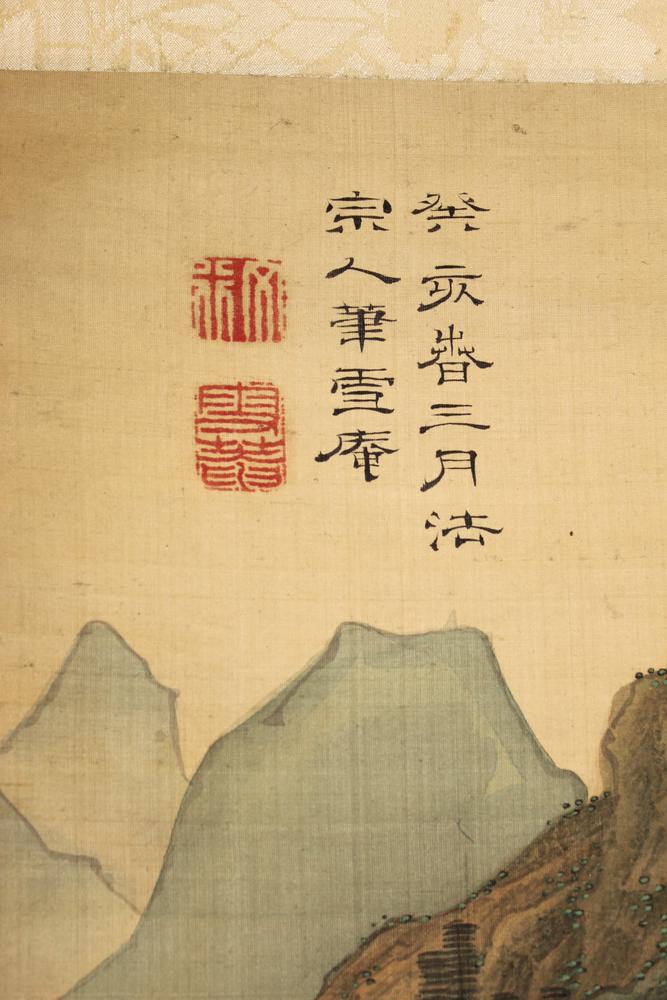 癸亥春三月法
宗人筆雪庵